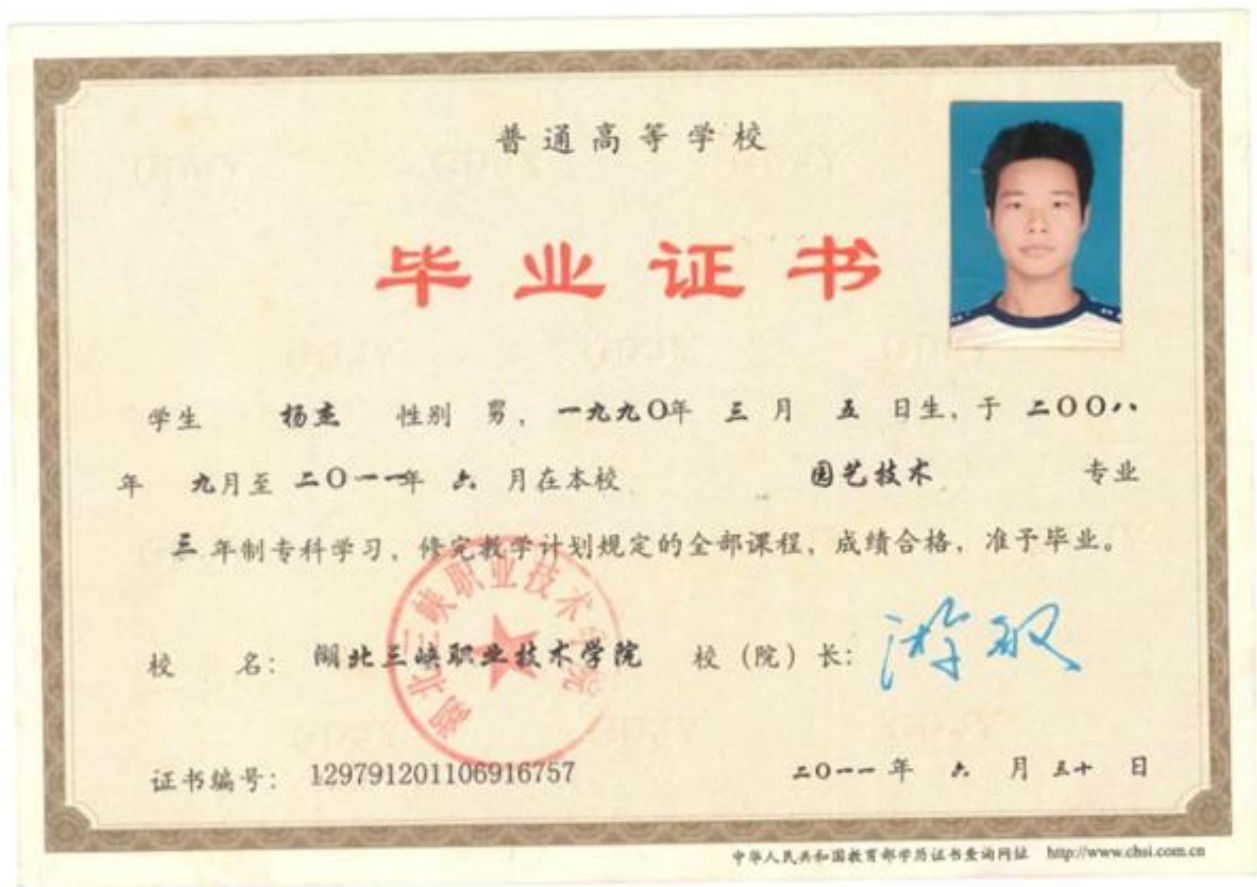 普通高等学校
毕业证书
学生 杨杰 性别 男，一九九〇年 三 月 五 日生，于 二〇〇八
年 九月至 二〇一一年 六 月在本校 园艺技术 专业
三 年制专科学习，修完教学计划规定的全部课程，成绩合格，准予毕业。
湖北三峡职业技术学院
校 名： 湖北三峡职业技术学院 校（院）长： 游敏
证书编号： 129791201106916757 二〇一一 年 六 月 三十 日
中华人民共和国教育部学历证书查询网址 http://www.chsi.com.cn